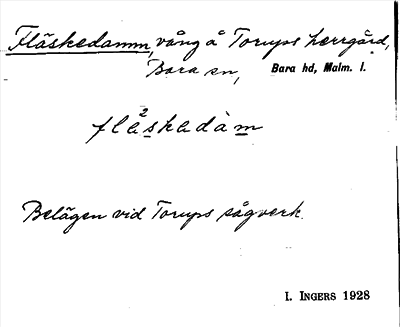 Fläskedamm, vång å Torups herrgård,
Bara sn, Bara hd, Malm. l.
flä²skadàm
Belägen vid Torups sågverk.
I. INGERS 1928